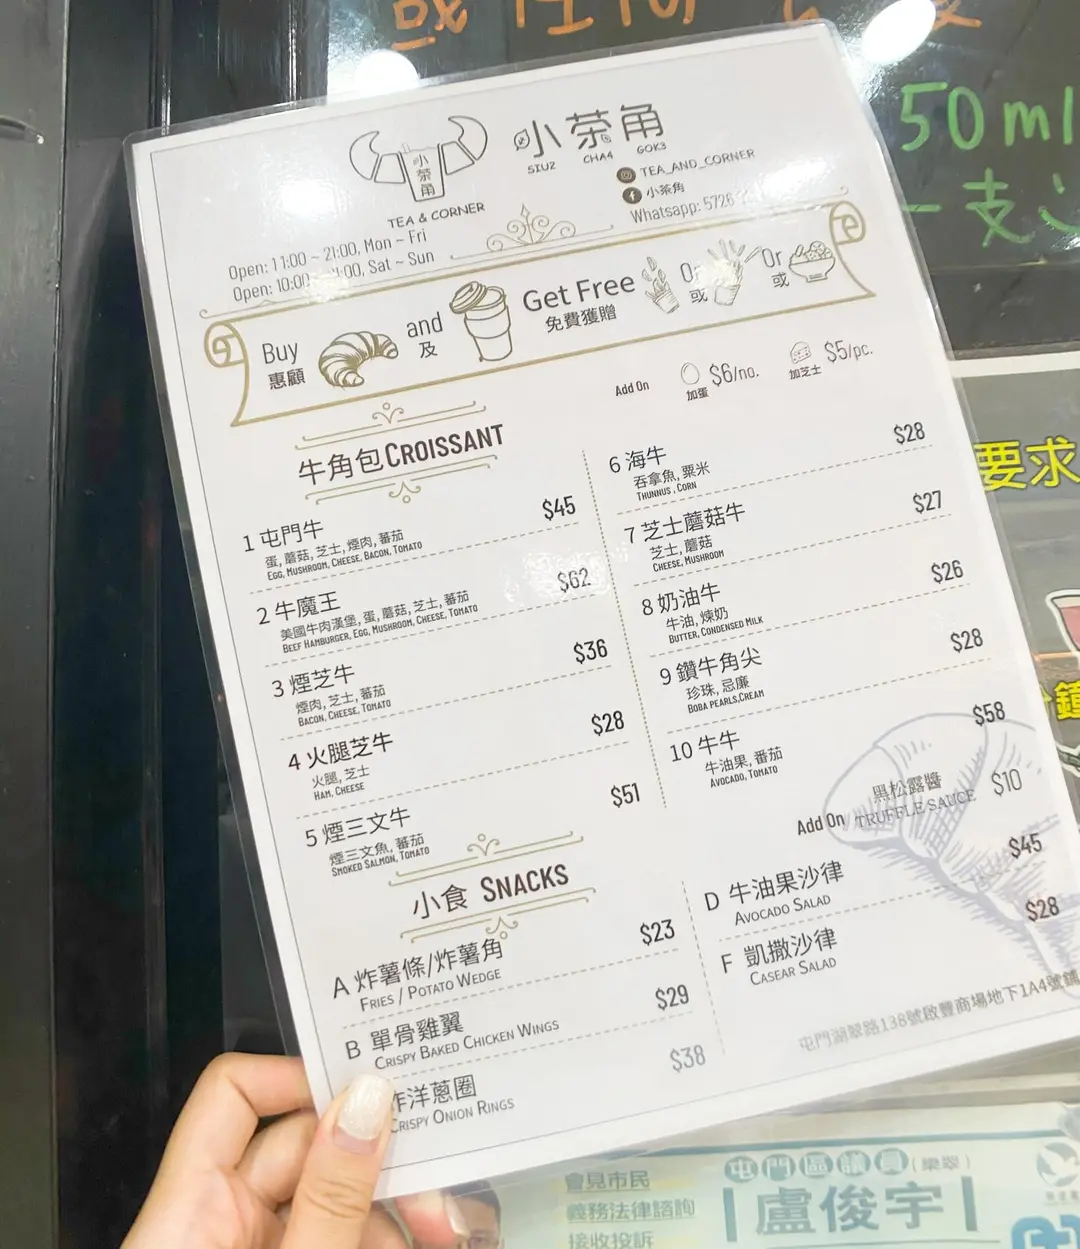 50ml
一支
小茶角
TEA & CORNER
小茶角
SIU2 CHA4 GOK3
TEA_AND_CORNER
小茶角
Whatsapp: 5726
Open: 11:00 ~ 21:00, Mon ~ Fri
Open: 10:00 ~ 21:00, Sat ~ Sun
Buy and Get Free Or Or
惠顧 及 免費獲贈 或 或
Add On $6/no. $5/pc.
加蛋 加芝士
牛角包 CROISSANT
1 屯門牛 $45
蛋, 蘑菇, 芝士, 煙肉, 蕃茄
EGG, MUSHROOM, CHEESE, BACON, TOMATO
2 牛魔王 $62
美國牛肉漢堡, 蛋, 蘑菇, 芝士, 蕃茄
BEEF HAMBURGER, EGG, MUSHROOM, CHEESE, TOMATO
3 煙芝牛 $36
煙肉, 芝士, 蕃茄
BACON, CHEESE, TOMATO
4 火腿芝牛 $28
火腿, 芝士
HAM, CHEESE
5 煙三文牛 $51
煙三文魚, 蕃茄
SMOKED SALMON, TOMATO
6 海牛 $28
吞拿魚, 粟米
THUNNUS , CORN
7 芝士蘑菇牛 $27
芝士, 蘑菇
CHEESE, MUSHROOM
8 奶油牛 $26
牛油, 煉奶
BUTTER, CONDENSED MILK
9 鑽牛角尖 $28
珍珠, 忌廉
BOBA PEARLS,CREAM
10 牛牛 $58
牛油果, 蕃茄
AVOCADO, TOMATO
黑松露醬
Add On TRUFFLE SAUCE $10
小食 SNACKS
A 炸薯條/炸薯角 $23
FRIES / POTATO WEDGE
B 單骨雞翼 $29
CRISPY BAKED CHICKEN WINGS
炸洋蔥圈 $38
CRISPY ONION RINGS
D 牛油果沙律 $45
AVOCADO SALAD
F 凱撒沙律 $28
CASEAR SALAD
屯門湖翠路138號啟豐商場地下1A4號舖
要求
鐘
會見市民
義務法律諮詢
接收投訴
屯門區議員(樂翠)
盧俊宇